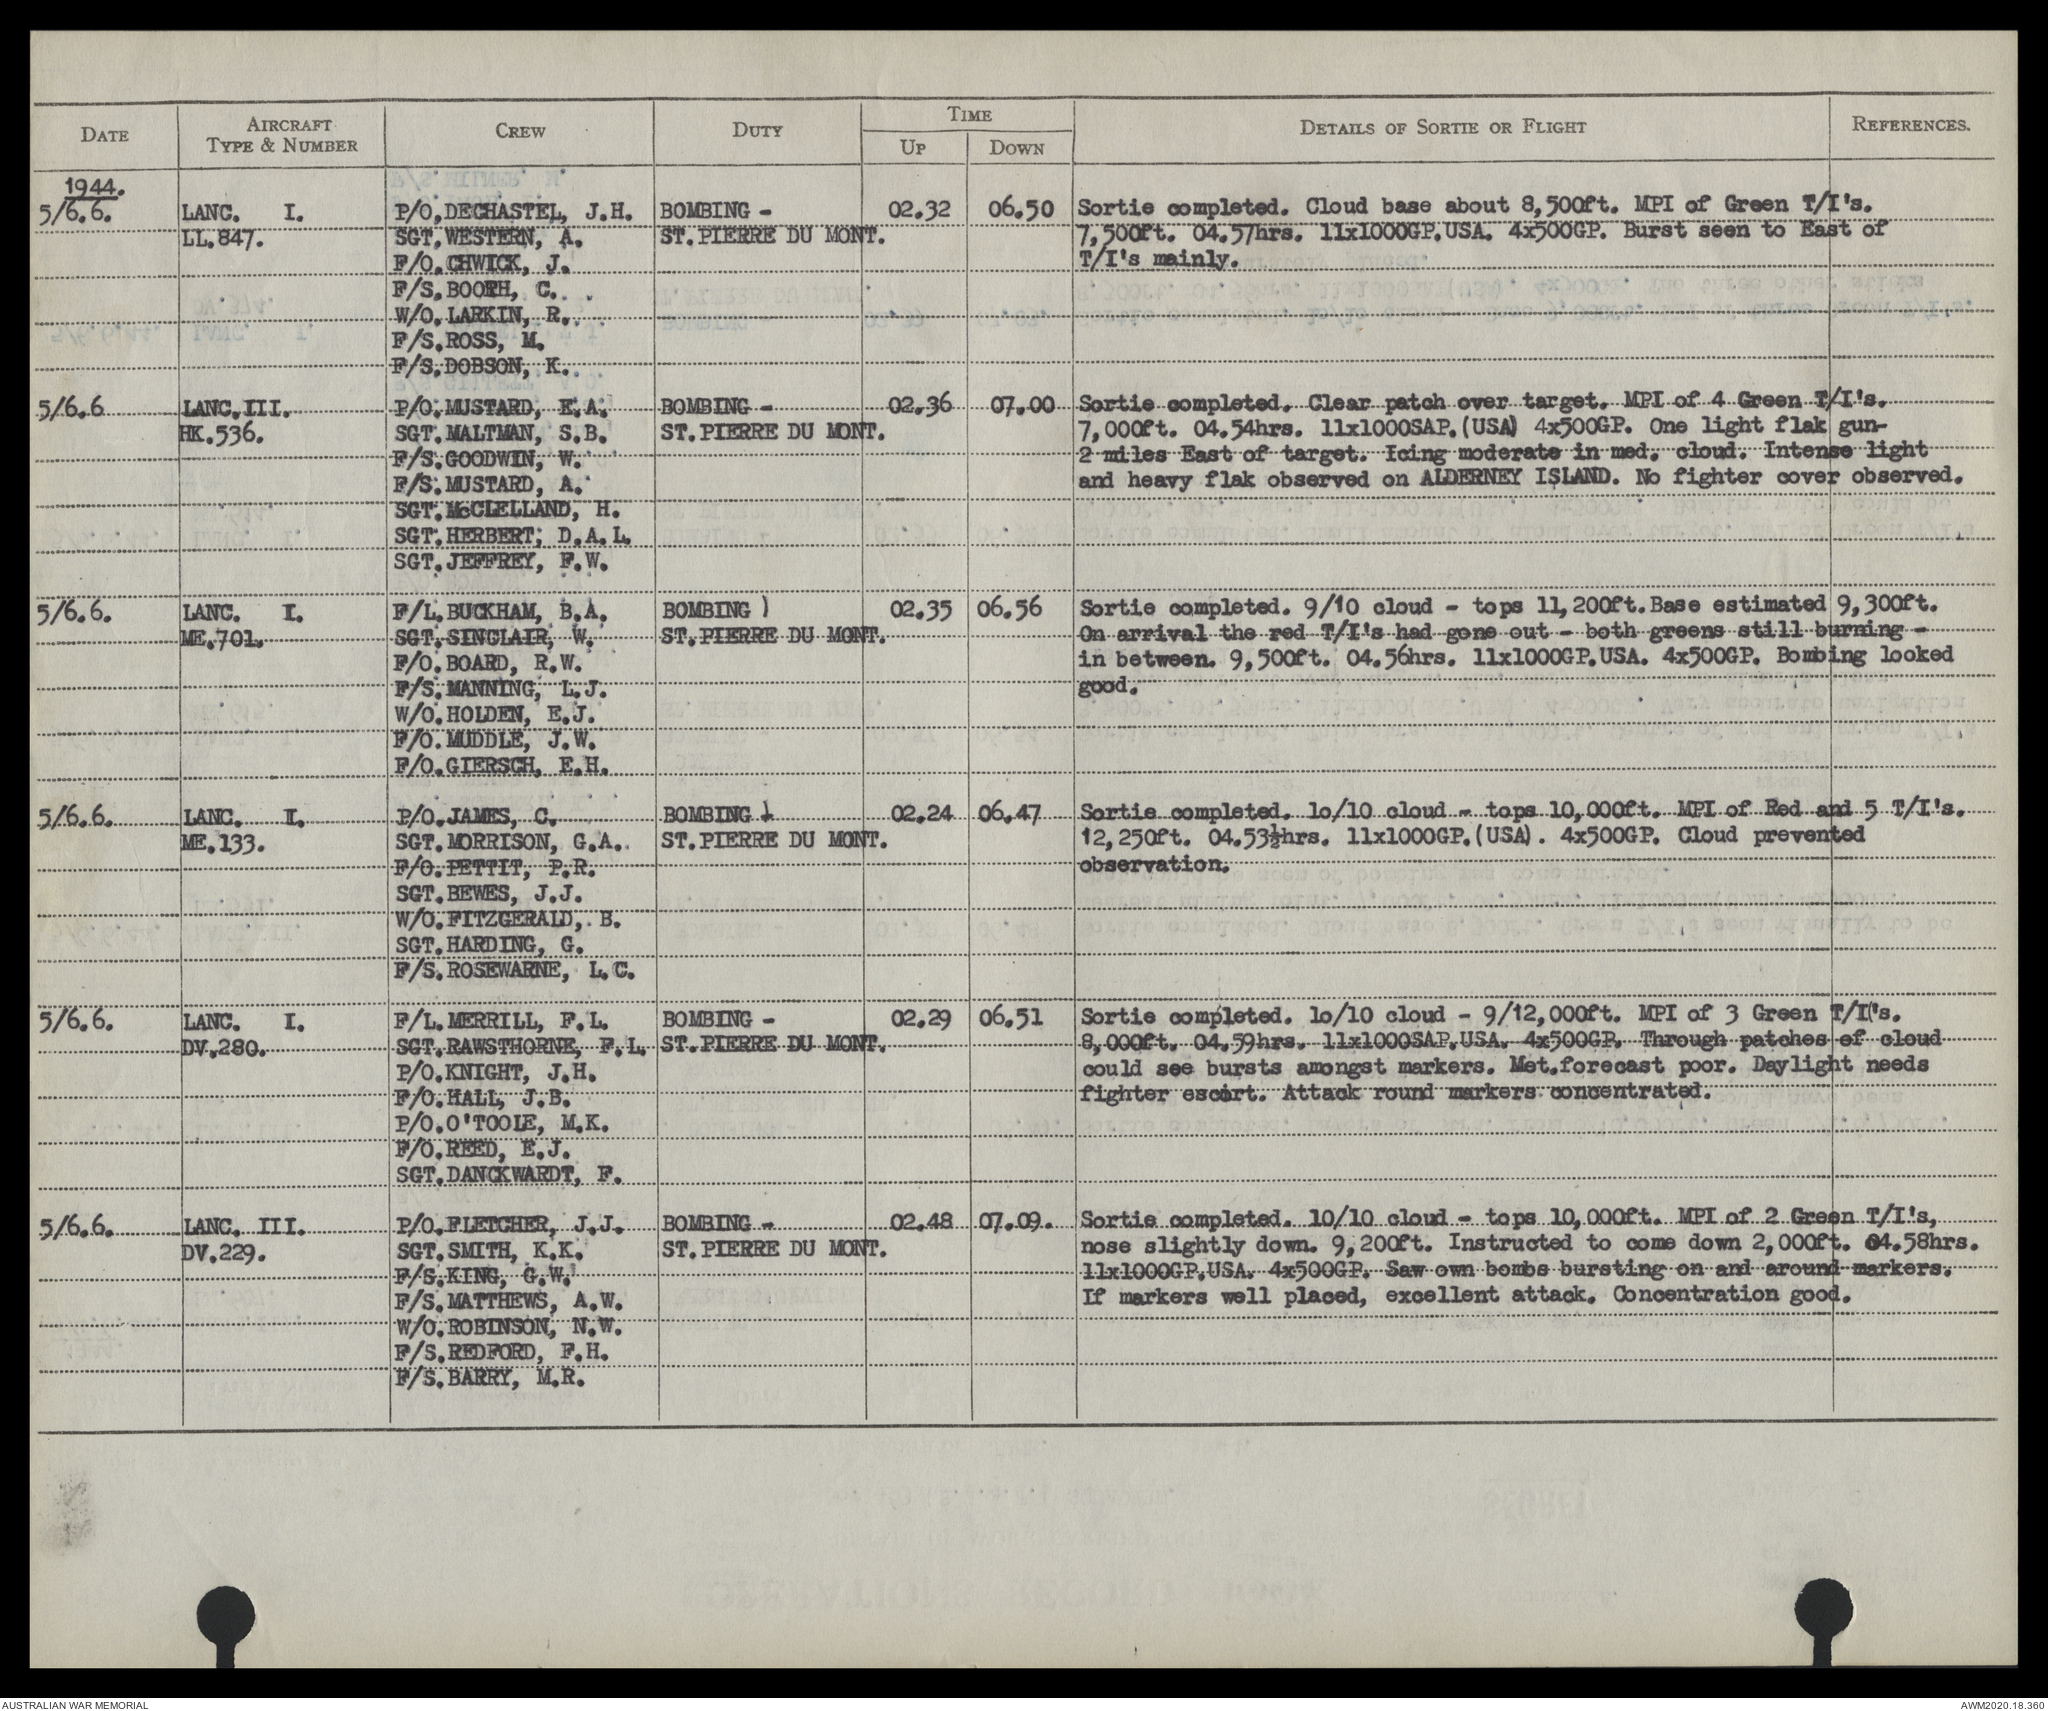 DATE AIRCRAFT TYPE & NUMBER CREW DUTY TIME UP DOWN DETAILS OF SORTIE OR FLIGHT REFERENCES.
1944.
5/6.6. LANC. I. P/O.DECHASTEL, J.H. BOMBING - 02.32 06.50 Sortie completed. Cloud base about 8,500ft. MPI of Green T/I's.
LL.847. SGT.WESTERN, A. ST.PIERRE DU MONT. 7,500ft. 04.57hrs. 11x1000GP.USA. 4x500GP. Burst seen to East of
F/O.CHWICK, J. T/I's mainly.
F/S.BOOTH, C.
W/O.LARKIN, R.
F/S.ROSS, M.
F/S.DOBSON, K.
5/6.6 LANC.III. P/O.MUSTARD, E.A. BOMBING - 02.36 07.00 Sortie completed. Clear patch over target. MPI of 4 Green T/I's.
HK.536. SGT.MALTMAN, S.B. ST.PIERRE DU MONT. 7,000ft. 04.54hrs. 11x1000SAP.(USA) 4x500GP. One light flak gun-
F/S.GOODWIN, W. 2 miles East of target. Icing moderate in med. cloud. Intense light
F/S.MUSTARD, A. and heavy flak observed on ALDERNEY ISLAND. No fighter cover observed.
SGT.McCLELLAND, H.
SGT.HERBERT, D.A.L.
SGT.JEFFREY, F.W.
5/6.6. LANC. I. F/L.BUCKHAM, B.A. BOMBING ) 02.35 06.56 Sortie completed. 9/10 cloud - tops 11,200ft.Base estimated 9,300ft.
ME.701. SGT.SINCLAIR, W. ST.PIERRE DU MONT. On arrival the red T/I's had gone out - both greens still burning -
F/O.BOARD, R.W. in between. 9,500ft. 04.56hrs. 11x1000GP.USA. 4x500GP. Bombing looked
F/S.MANNING, L.J. good.
W/O.HOLDEN, E.J.
F/O.MUDDLE, J.W.
F/O.GIERSCH, E.H.
5/6.6. LANC. I. P/O.JAMES, C. BOMBING - 02.24 06.47 Sortie completed. 1o/10 cloud - tops 10,000ft. MPI of Red and 5 T/I's.
ME.133. SGT.MORRISON, G.A. ST.PIERRE DU MONT. 12,250ft. 04.53½hrs. 11x1000GP.(USA). 4x500GP. Cloud prevented
F/O.PETTIT, P.R. observation.
SGT.BEWES, J.J.
W/O.FITZGERALD, B.
SGT.HARDING, G.
F/S.ROSEWARNE, L.C.
5/6.6. LANC. I. F/L.MERRILL, F.L. BOMBING - 02.29 06.51 Sortie completed. 1o/10 cloud - 9/12,000ft. MPI of 3 Green T/I's.
DV.280. SGT.RAWSTHORNE, F.L. ST.PIERRE DU MONT. 8,000ft. 04.59hrs. 11x1000SAP.USA. 4x500GP. Through patches of cloud
P/O.KNIGHT, J.H. could see bursts amongst markers. Met.forecast poor. Daylight needs
F/O.HALL, J.B. fighter escort. Attack round markers concentrated.
P/O.O'TOOLE, M.K.
F/O.REED, E.J.
SGT.DANCKWARDT, F.
5/6.6. LANC. III. P/O.FLETCHER, J.J. BOMBING - 02.48 07.09. Sortie completed. 10/10 cloud - tops 10,000ft. MPI of 2 Green T/I's,
DV.229. SGT.SMITH, K.K. ST.PIERRE DU MONT. nose slightly down. 9,200ft. Instructed to come down 2,000ft. 04.58hrs.
F/S.KING, G.W. 11x1000GP.USA. 4x500GP. Saw own bombs bursting on and around markers.
F/S.MATTHEWS, A.W. If markers well placed, excellent attack. Concentration good.
W/O.ROBINSON, N.W.
F/S.REDFORD, F.H.
F/S.BARRY, M.R.
AUSTRALIAN WAR MEMORIAL AWM2020.18.360